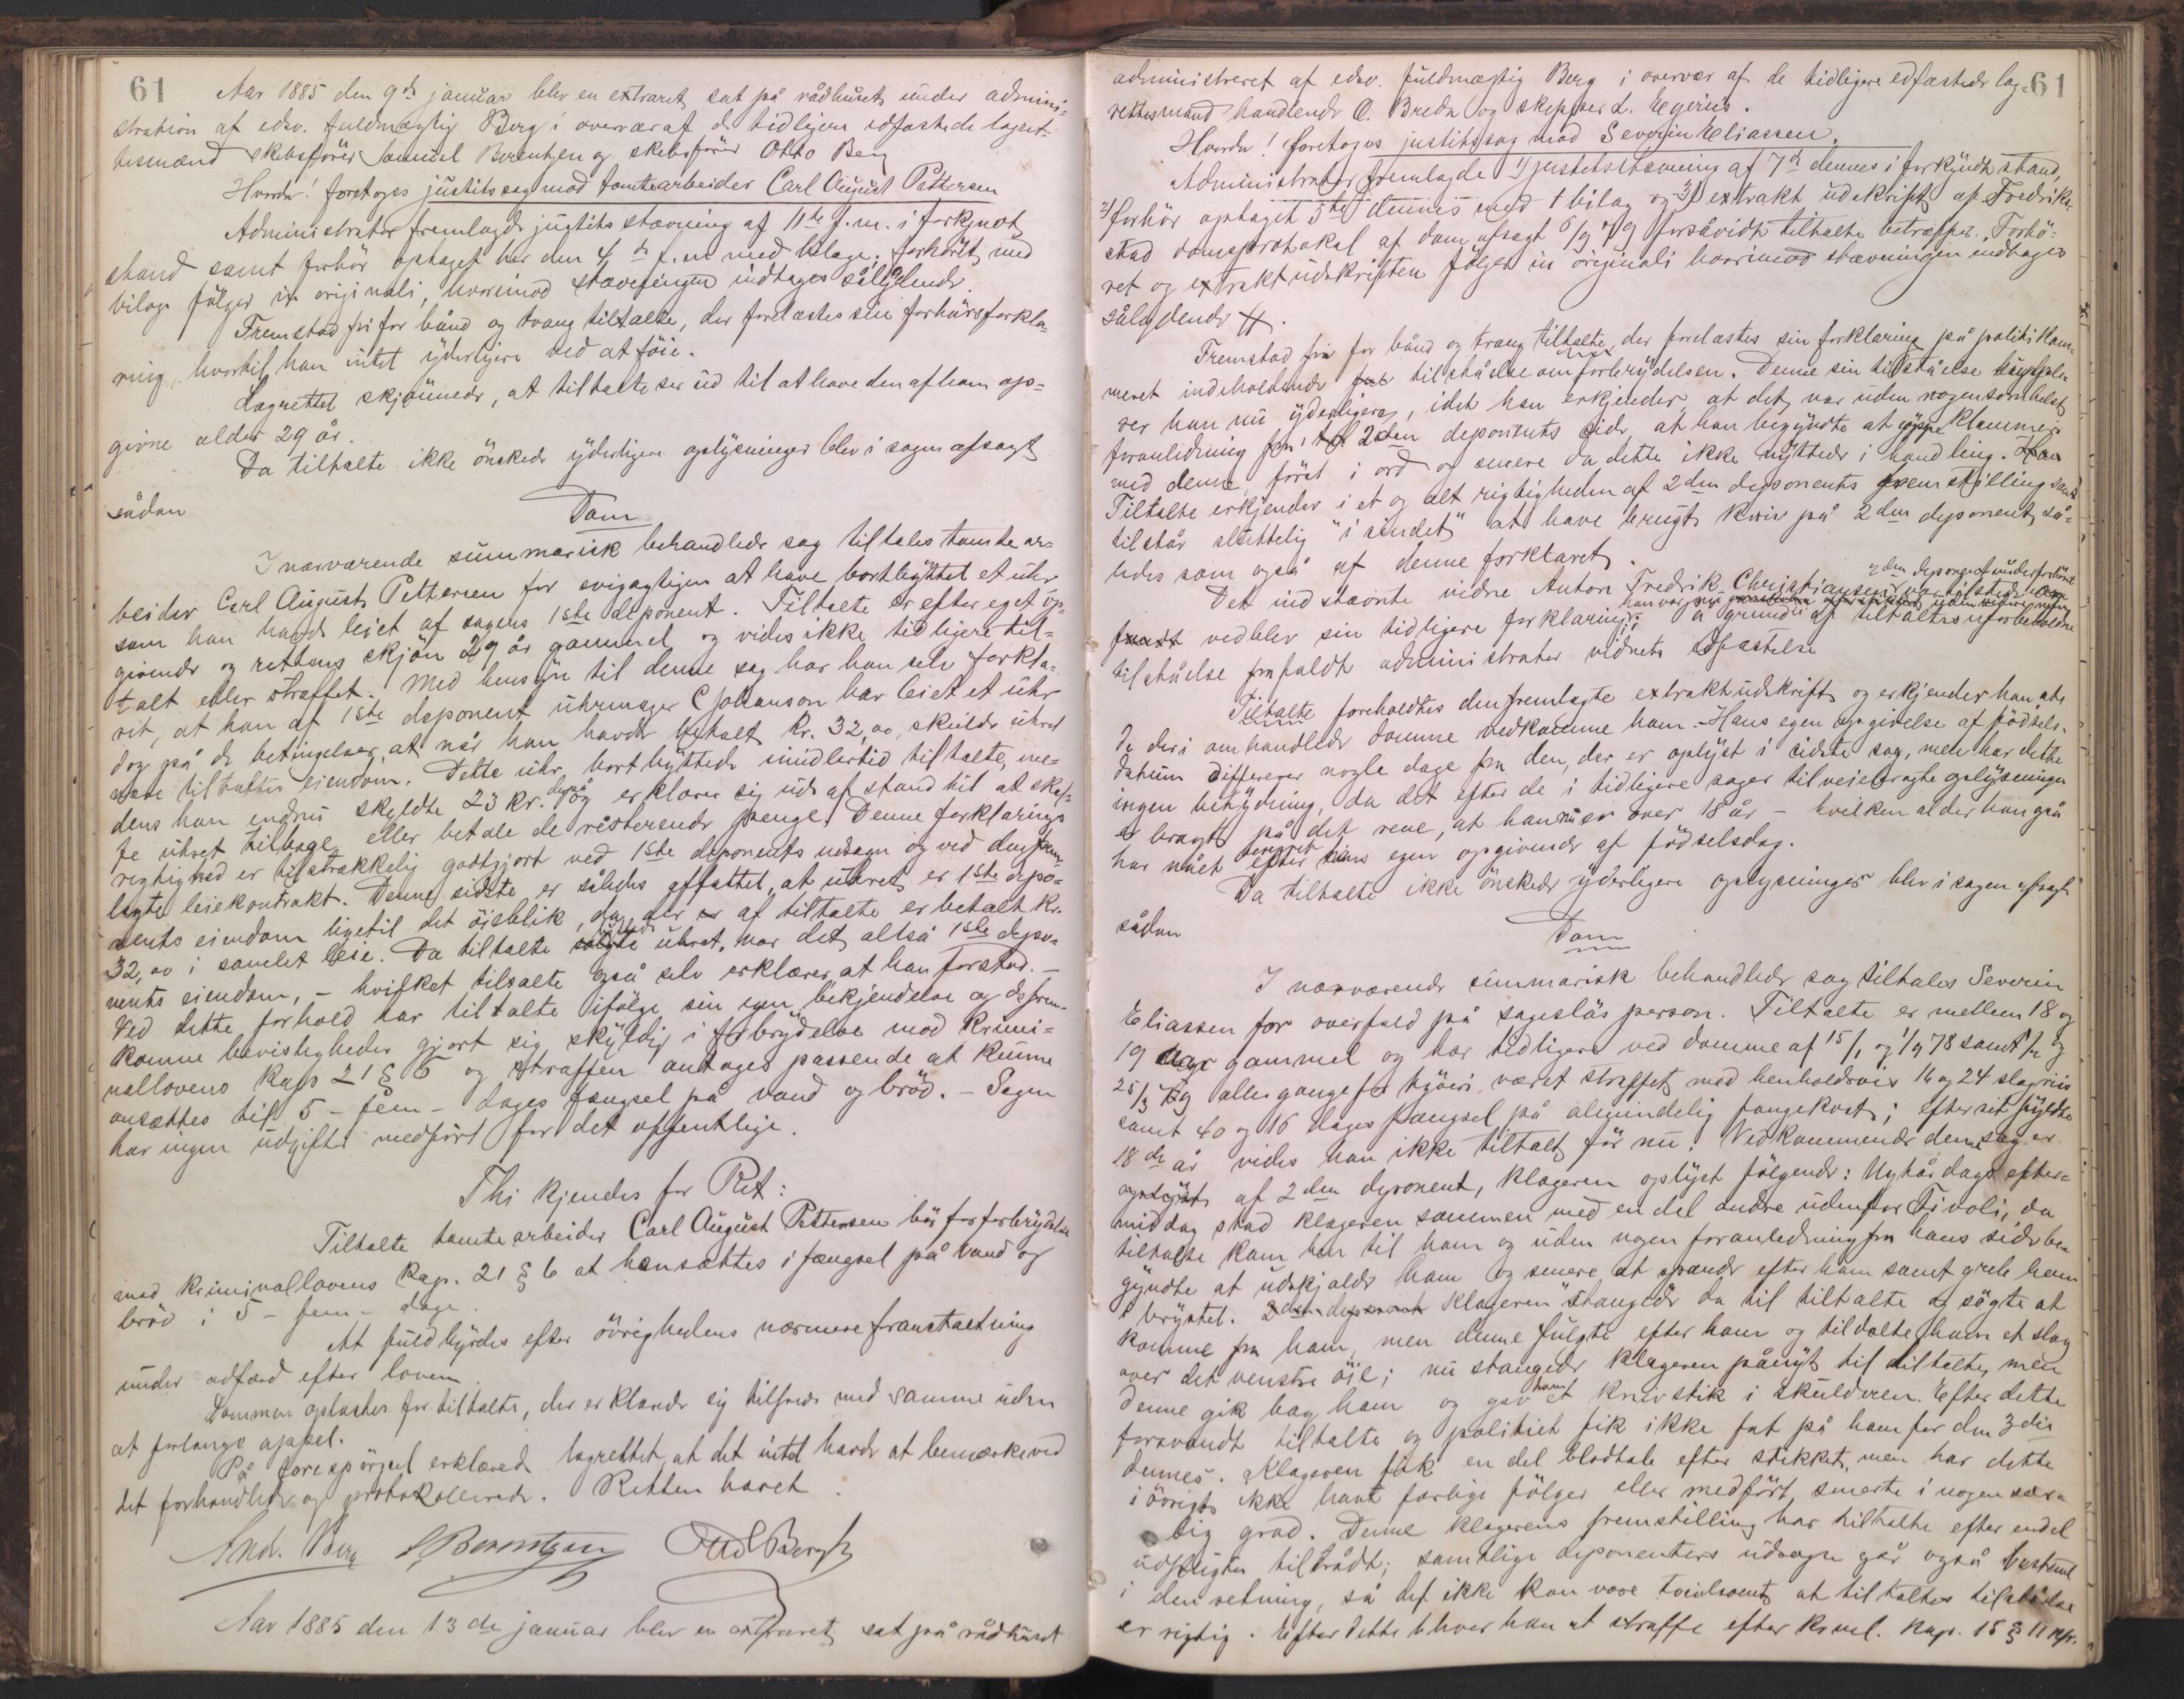 61
Aar 1885 den 9de januar blev en extraret sat på rådhuset under admini-
stration af edsv. fuldmægtig Berg i overvær af de tidligere edfæstede lagret-
tesmænd skibsfører Samuel Berentzen og skibsfører Otto Berg
Hvorda! foretoges justitssag mod tomtearbeider Carl August Pettersen
Administrator fremlagde justits stævning af 11te f. m. i forkyndt
stand samt forhør optaget her den 4de f. m med bilage. forhöret med
bilage fölger in originali, hvorimod stævningen indtages sålydende.
Fremstod fri for bånd og tvang tiltalte, der forelæstes sin forhörsforkla-
ring, hvortil han intet yderligere ved at föie.
Lagrettet skjönnede, at tiltalte ser ud til at have den af ham op-
givne alder 29 år.
Da tiltalte ikke önskede yderligere oplysninger blev i sagen afsagt
sådan
Dom
I nærværende summarisk behandlede sag tiltales tomtear-
beider Carl August Pettersen for svigagtigen at have bortbyttet et uhr
som han havde leiet af sagens 1ste deponent. Tiltalte er efter eget op-
givende og rettens skjön 29 år gammel og vides ikke tidligere til-
talt eller straffet. Med hensyn til denne sag har han selv forkla-
ret, at han af 1ste deponent uhrmager C Johanson har leiet et uhr
dog på de betingelser, at når han havde betalt kr. 32,00, skulde uhret
være tiltaltes eiendom. Dette uhr bortbyttede imidlertid tiltalte, me-
dens han endnu skyldte 23 kr. derpå og erklærer sig ude af stand til at skaf-
fe uhret tilbage eller betale de resterende penge. Denne forklarings
rigtighed er tilstrækkelig godtgjort ved 1ste deponents udsagn og ved den frem-
lagte leiekontrakt. Denne sidste er således affattet, at uhret er 1ste depo-
nents eiendom ligetil det öieblik, da der er af tiltalte er betalt kr.
32,00 i samlet leie. Da tiltalte uhret, var det altså 1ste depo-
nents eiendom, - hvilket tiltalte også selv erklærer, at han forstod. -
Ved dette forhold har tiltalte ifölge sin egen bekjendelse og de frem-
komne bevisligheder gjort sig skyldig i forbrydelse mod krimi-
nallovens kap 21 § 6 og straffen antages passende at kunne
ansættes til 5 - fem - dages fængsel på vand og bröd. - Sagen
har ingen udgifter medfört for det offentlige.
Thi kjendes for Ret:
Tiltalte tomtearbeider Carl August Pettersen bör for forbrydelse
mod kriminallovens kap. 21 § 6 at hensættes i fængsel på vand og
bröd i 5 - fem - dage.
At fuldbyrdes efter övrighedens nærmere foranstaltning
under adfærd efter loven.
Dommen oplæstes for tiltalte, der erklærede sig tilfreds med samme uden
at forlange appel.
På forespörgsel erklærede lagrettet, at det intet havde at bemærke ved
det forhandlede og protokollerede. Retten hævet.
And. Berg S Berentzen Otto Bergh
Aar 1885 den 13de januar blev en extraret sat på rådhuset
61
administreret af edsv. fuldmægtig Berg i overvær af de tidligere edfæstede lag-
rettesmænd handlende O. Brede og skipper L. Egerius.
Hvorda! foretoges justitssag mod Severin Eliassen.
Administrator fremlagde 1) justitsstævning af 7de dennes i forkyndt stand,
2) forhör optaget 5te dennes med 1 bilag og 3) extrakt udskrift af Fredrik-
stad domsprotokol af dom afsagt 6/9 79 forsåvidt tiltalte betræffer. Forhö-
ret og extraktudskriften fölger in originali hvorimod stævningen indtages
sålydende
Fremstod fri for bånd og tvang tiltalte, der forelæstes sin forklaring på politikam-
meret indeholdende tilståelse om forbrydelsen. Denne sin tilståelse supple-
rer han nu yderligere, idet han erkjender, at det var uden nogensomhelst
foranledning fra 2den deponents side, at han begyndte at yppe klammeri
med denne, först i ord og senere da dette ikke nyttede i handling.
Tiltalte erkjender i et og alt rigtigheden af 2den deponents fremstilling samt
tilstår sluttelig "i sindet" at have brugt kniv på 2den deponent så-
ledes som også af denne forklaret.
Det indstævnte vidne Anton Fredrik Christiansen 2den deponent under forhöret var tilstede
vedblev sin tidligere forklaring; på grund af tiltaltes uforbeholdne
tilståelse frafaldt administrator vidnets edfæstelse
Tiltalte foreholdtes den fremlagte extraktudskrift og erkjender han at
de deri omhandlede domme vedkomme ham. Hans egen opgivelse af födsels-
datum differerer nogle dage fra den, der er oplyst i sidste sag, men har dette
ingen betydning, da det efter de i tidligere sager tilveiebragte oplysninger
er bragt på det rene, at han nu er over 18 år - hvilken alder han også
har nået efter sin egen opgivende af födselsdag.
Da tiltalte ikke önskede yderligere oplysninger blev i sagen afsagt
sådan
Dom
I nærværende summarisk behandlede sag tiltales Severin
Eliassen for overfald på sageslös person. Tiltalte er mellem 18 og
19 aar gammel og har tidligere ved domme af 15/1 og 1/9 78 samt og
25/3 79 alle gange for tyveri været straffet med henholdsvis 16 og 24 slag riis
samt 40 og 16 dages fængsel på almindelig fangekost; efter sit fyldte
18de år vides han ikke tiltalt för nu. Vedkommende denne sag er
af 2den deponent, klageren oplyst fölgende: Nytårdags efter-
middag stod klageren sammen med en del andre udenfor Tivoli, da
tiltalte kom hen til ham og uden nogen foranledning fra hans side be-
gyndte at udskjælde ham og senere at spænde efter ham samt greb ham
i brystet. Klageren stangede da til tiltalte og sögte at
komme fra ham, men denne fulgte efter ham og tildelte ham et slag
over det venstre öie; nu stangede klageren pånyt til tiltalte, men
denne gik bag ham og gav ham et knivstik i skulderen. Efter dette
forsvandt tiltalte og politiet fik ikke fat på ham för den 3die
dennes. Klageren fik en del blodtab efter stikket, men har dette
i övrigt ikke havt farlige fölger eller medfört smerte i nogen sær-
lig grad. Denne klagerens fremstilling har tiltalte efter endel
udflugter tiltrådt; samtlige deponenters udsagn går også bestemt
i den retning, så det ikke kan være tvivlsomt at tiltaltes tilståelse
er rigtig. Efter dette bliver han at straffe efter krml. kap. 15 § 11 kfr.